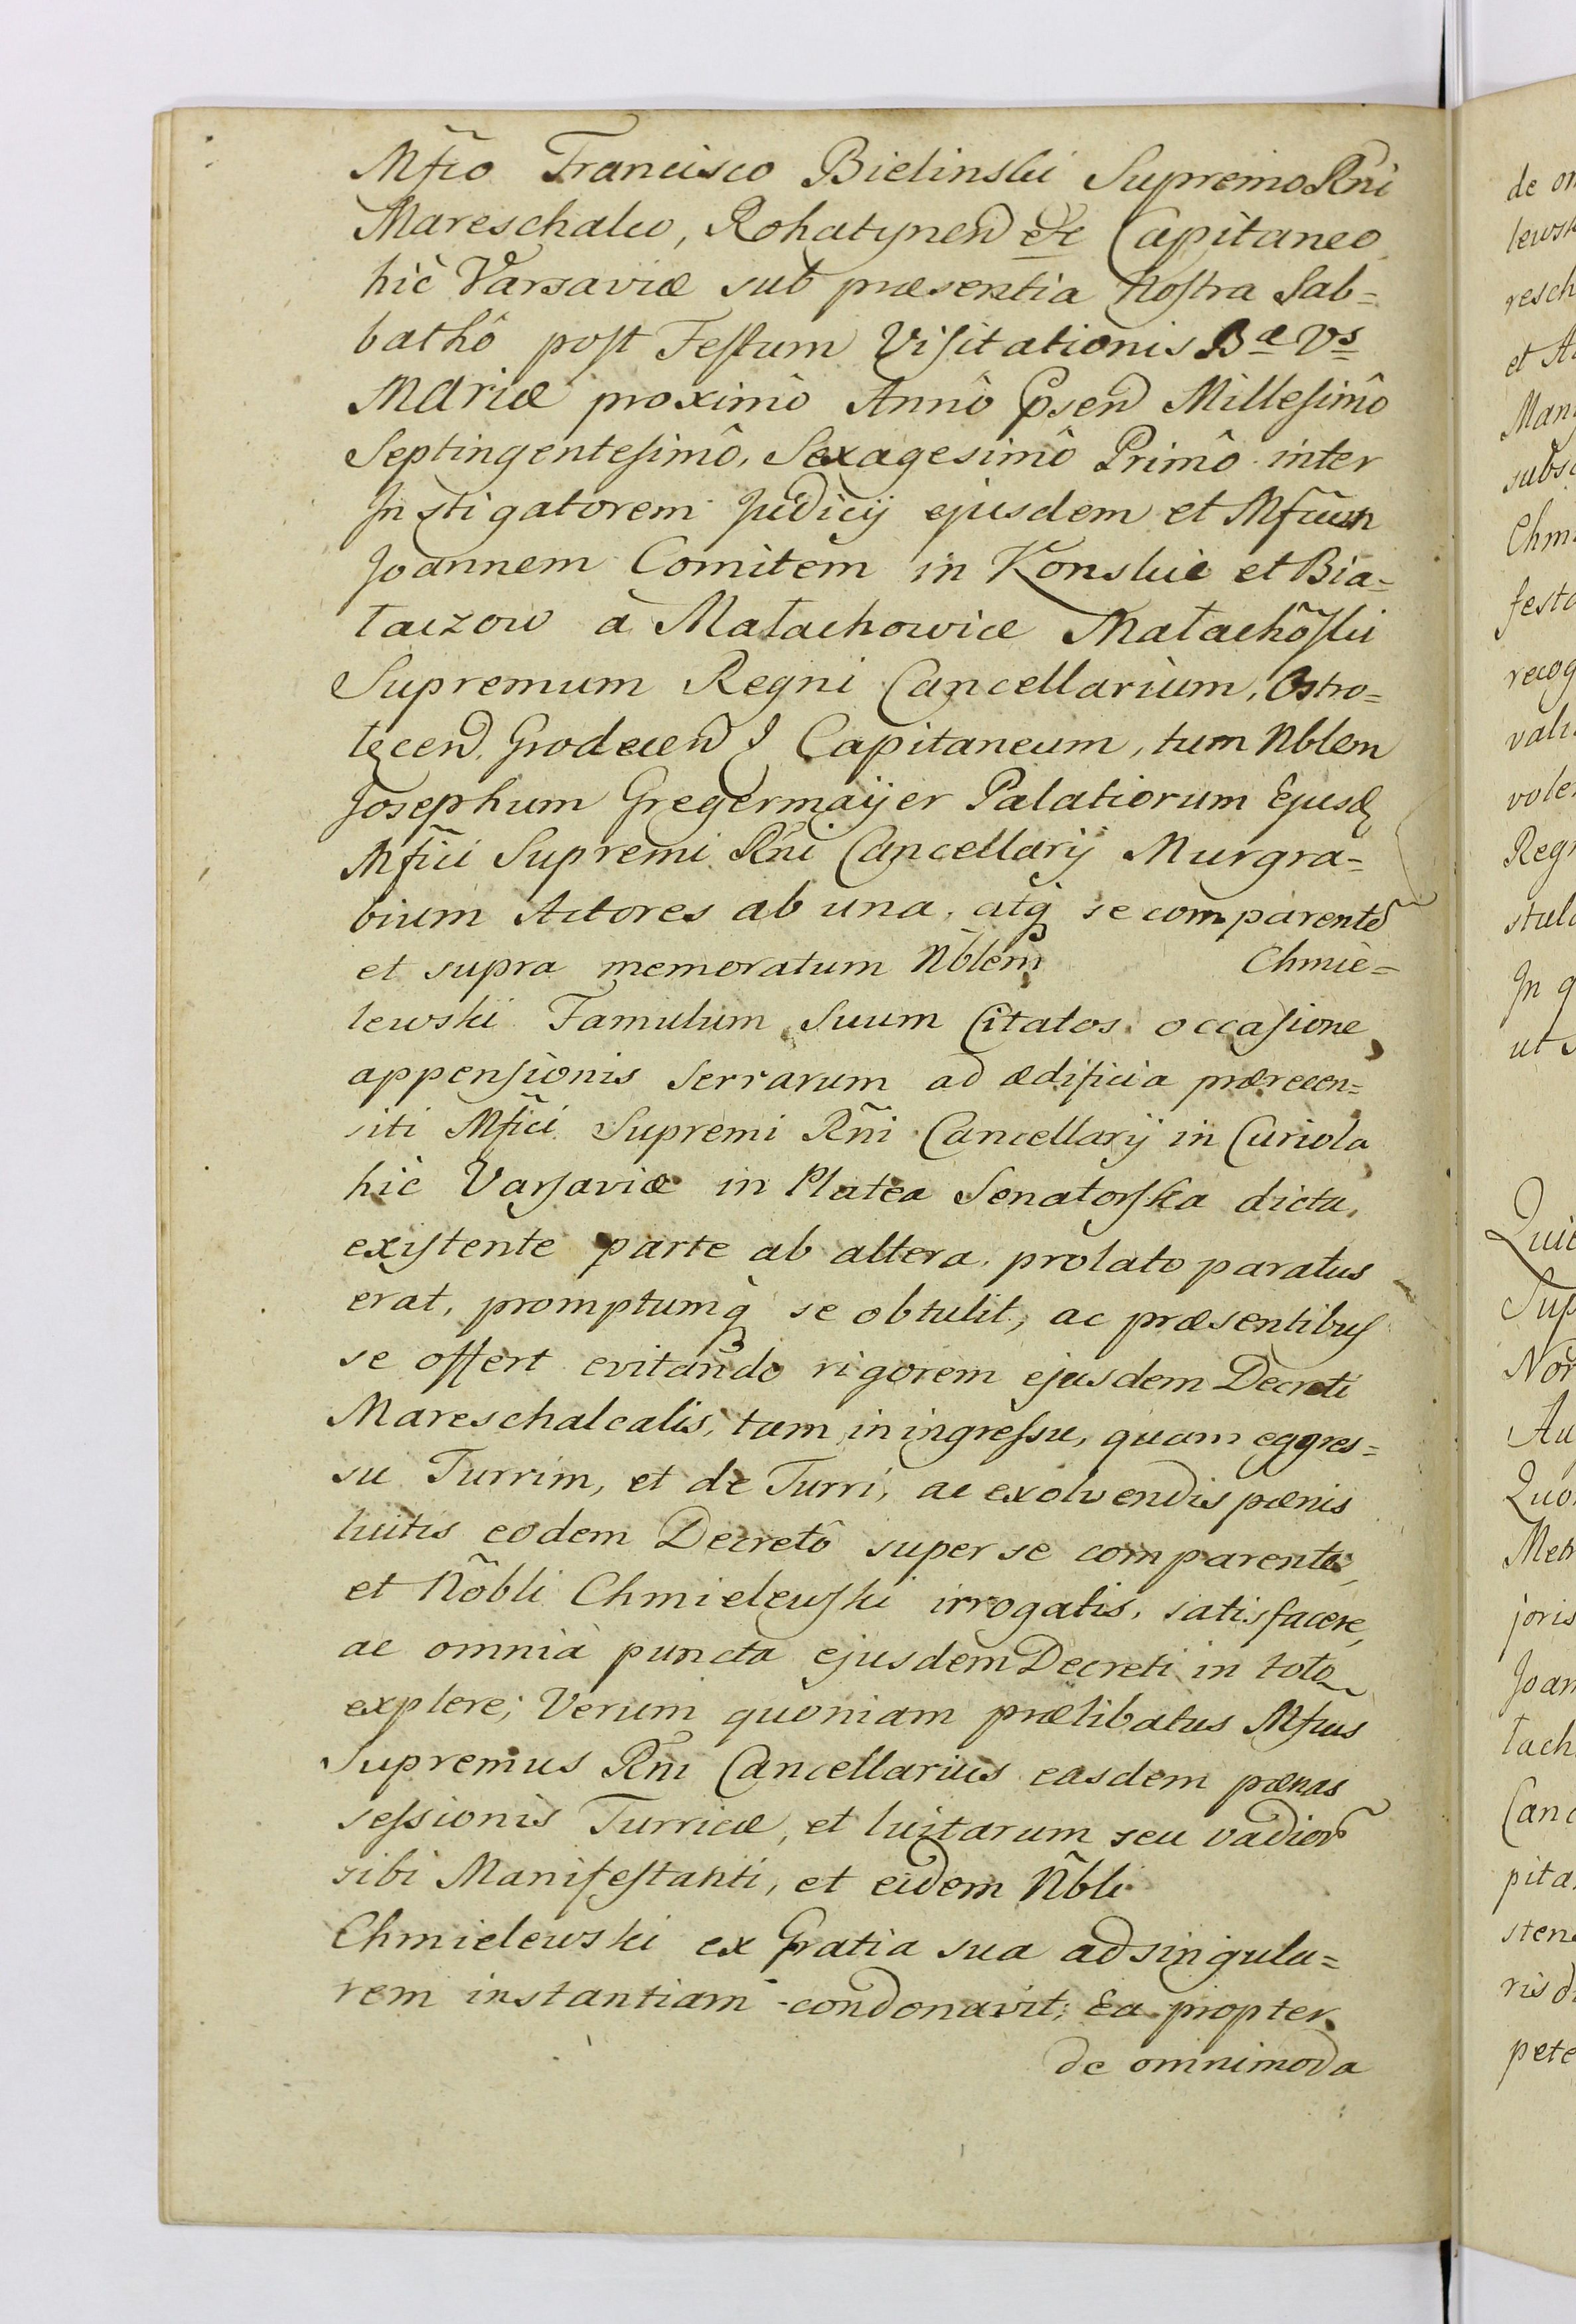 Mf̃co Francisco Bielinski Supremo Rñi
Mareschalco, Rohatynen̄ etc Capitaneo
hic Varsaviæ sub præsentia Nostra Sab=
bathô post Festum Visitationis Bæ Vs
Mariæ proximô Annô Psen̄ Millesimô
Septingentesimô, Sexagesimô Primô inter
Instigatorem Judicij ejusdem et Mf̃cum
Joannem Comitem in Konskie et Bia=
łaczow a Małachowice Małachõski
Supremum Regni Cancellarium, Ostro=
łęcen̄, Grodecen̄ & Capitaneum, tum Nblem
Josephum Gregermaijer Palatiorum Ejusd
Mf̃ici Supremi Rñi Cancellarij Murgra=
bium Actores ab una, atq̃ se comparentẽ
et supra memoratum Ñblem Chmie=
lewski Famulum Suum Citatos occasione
appensionis serrarum ad ædificia præreccen=
siti Mf̃ici Supremi Rñi Cancellarij in Curiola
hic Varsaviæ in Platea Senatorska dicta,
existente parte ab altera, prolato paratus
erat, promptumq̃ se obtulit, ac præsentibus
se offert evitando rigorem ejusdem Decreti
Mareschalcalis, tam in ingressu, quam eggres=
su Turrim, et de Turri, ac exolvendis pænis
luitis eodem Decretô super se comparente,
et Nõbli Chmielewski irrogatis, satisfacere,
ac omnia puncta ejusdem Decreti in toto
explere; Verum quoniam prælibatus Mf̃cus
Supremus Rñi Cancellarius easdem pænas
sessionis Turricæ, et luitarum seu vadiorõ
sibi Manifestanti, et eidem Ñbli
Chmielewski ex Gratia sua ad singula=
rem instantiam condonavit; Ea propter
de omnimoda
de
lewsk
resch
et
Man
subs
Chm
festa
recog
vali
vole
Regn
stula
In q
ut
Quic
Sup
Nor
Au
Quo
Met
joris
Joan
łach
Canc
pita
sten
ris d
pete